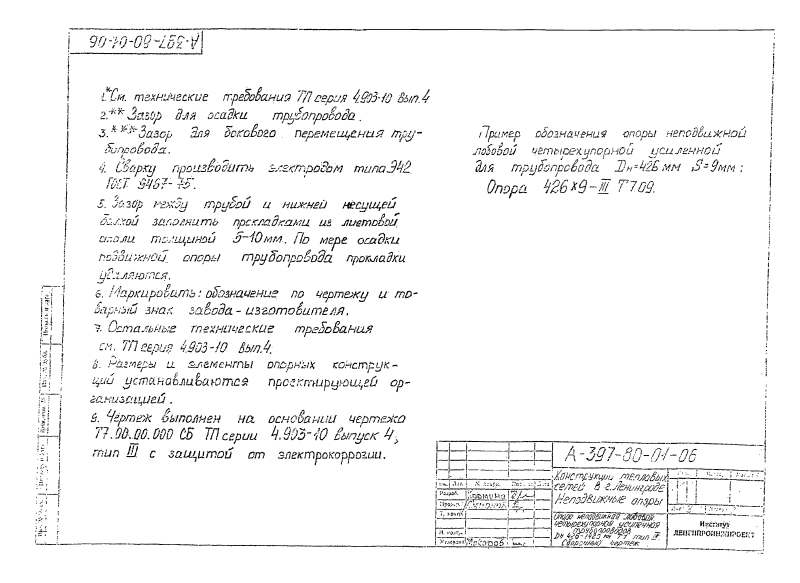 А-397-80-01-06
1.*См. технические требования ТП серия 4.903-10 Вып. 4
2.** Зазор для осадки трубопровода.
3.*** Зазор для бокового перемещения тру-
бопровода.
4. Сварку производить электродом типа Э42
ГОСТ 9467-75.
5. Зазор между трубой и нижней несущей
балкой заполнить прокладками из листовой
стали толщиной 5-10мм. По мере осадки
подвижной опоры трубопровода прокладки
удаляются.
6. Маркировать: обозначение по чертежу и то-
варный знак завода-изготовителя.
7. Остальные технические требования
см. ТП серия 4.903-10 вып.4.
8. Размеры и элементы опорных конструк-
ций устанавливаются проектирующей ор-
ганизацией.
9. Чертеж выполнен на основании чертежа
Т7.00.00.000 СБ ТП серии 4.903-10 Выпуск 4,
тип III с защитой от электрокоррозии.
Пример обозначения опоры неподвижной
лобовой четырехупорной усиленной
для трубопровода Dн=426 мм S=9мм:
Опора 426×9-III Т7.09.
А-397-80-01-06
Конструкции тепловых
сетей в г. Ленинграде
Неподвижные опоры
Опора неподвижная лобовая
четырехупорная усиленная
трубопроводов
Сборочный чертеж
Изм. Лист № докум. Подп. Дата
Разраб.
Провер.
Т. контр.
Н. контр.
Институт
ЛЕНГИПРОИНЖПРОЕКТ